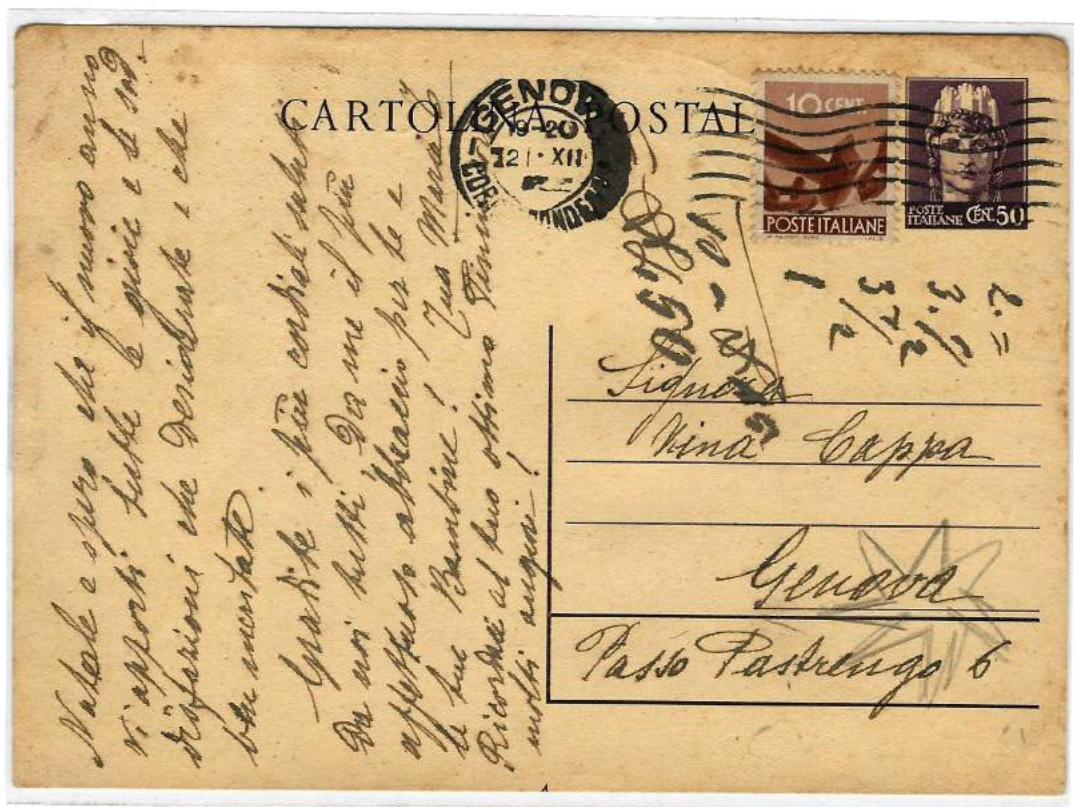 CARTOLINA POSTAL
GENOVA
19-20
21 XII
10 CENT.
POSTE ITALIANE
POSTE
ITALIANE CENT. 50
Signora
Nina Cappa
Genova
Passo Pastrengo 6
Natale e spero che il nuovo anno
vi apporti tutte le gioie e le sod-
disfazioni che desiderate e che
ben meritate
Gradite i più cordiali saluti
da noi tutti. Da me il più
affettuoso abbraccio per te e
le tue Bambine! Tua
Ricordaci al tuo ottimo
molti auguri!
2. =
3.
3 1/2
1